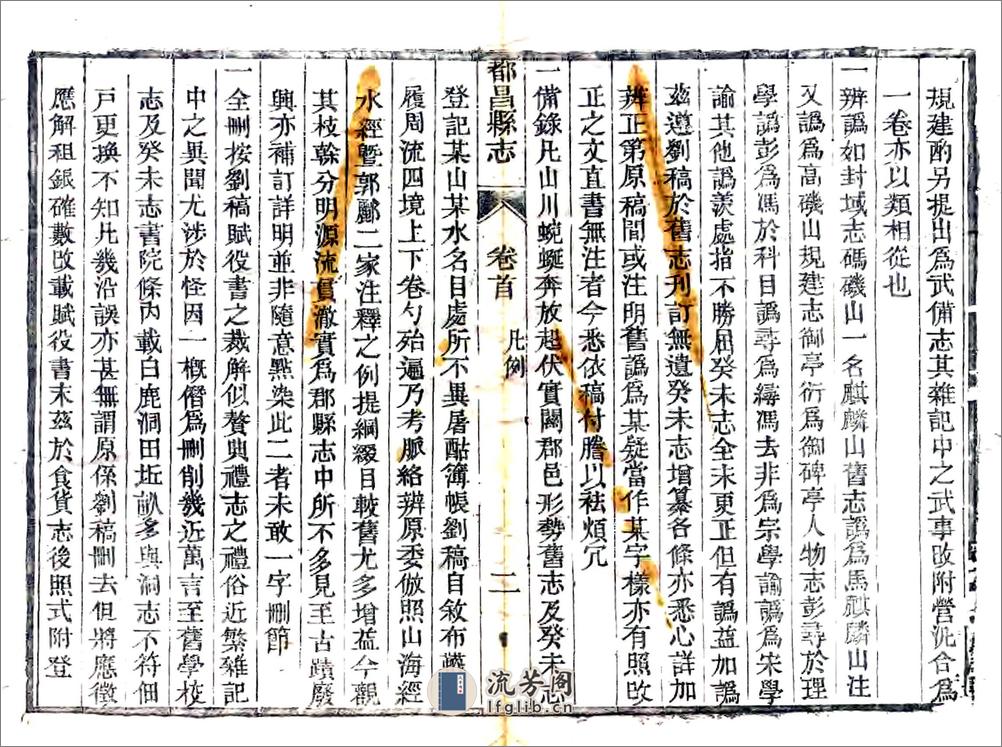 規建酌另提出為武備志其雜記中之武事改附營汎合為
一卷亦以類相從也
一辨譌如封域志碼磯山一名麒麟山舊志譌為馬麒麟山注
又譌為高磯山規建志御亭衍為御碑亭人物志彭尋於理
學譌彭為馮於科目譌尋為𬙂馮去非為宗學諭譌為宋學
諭其他譌羨處指不勝屈癸未志全未更正但有譌益加譌
茲遵劉稿於舊志刋訂無遺癸未志增纂各條亦悉心詳加
辨正第原稿間或注明舊譌為某疑當作某字樣亦有照改
正之文直書無注者今悉依稿付謄以袪煩冗
一備錄凡山川蜿蜒奔放起伏實關郡邑形勢舊志及癸未志
都昌縣志
卷首
凡例
二
登記某山某水名目處所不異屠酤簿帳劉稿自敘布襪
履周流四境上下卷勺殆遍乃考脈絡辨原委倣照山海經
水經暨郭酈二家注釋之例提綱綴目較舊尤多增益今觀
其枝榦分明源流貫澈實為郡縣志中所不多見至古蹟廢
興亦補訂詳明並非隨意點染此二者未敢一字刪節
一全刪按劉稿賦役書之裁解似贅典禮志之禮俗近繁雜記
中之異聞尤涉於怪因一概僭為刪削幾近萬言至舊學校
志及癸未志書院條內載白鹿洞田坵畝多與洞志不符佃
戶更換不知凡幾沿誤亦甚無謂原係劉稿刪去但將應徵
應解租銀確數改載賦役書末茲於食貨志後照式附登
流芳阁
lfglib.cn